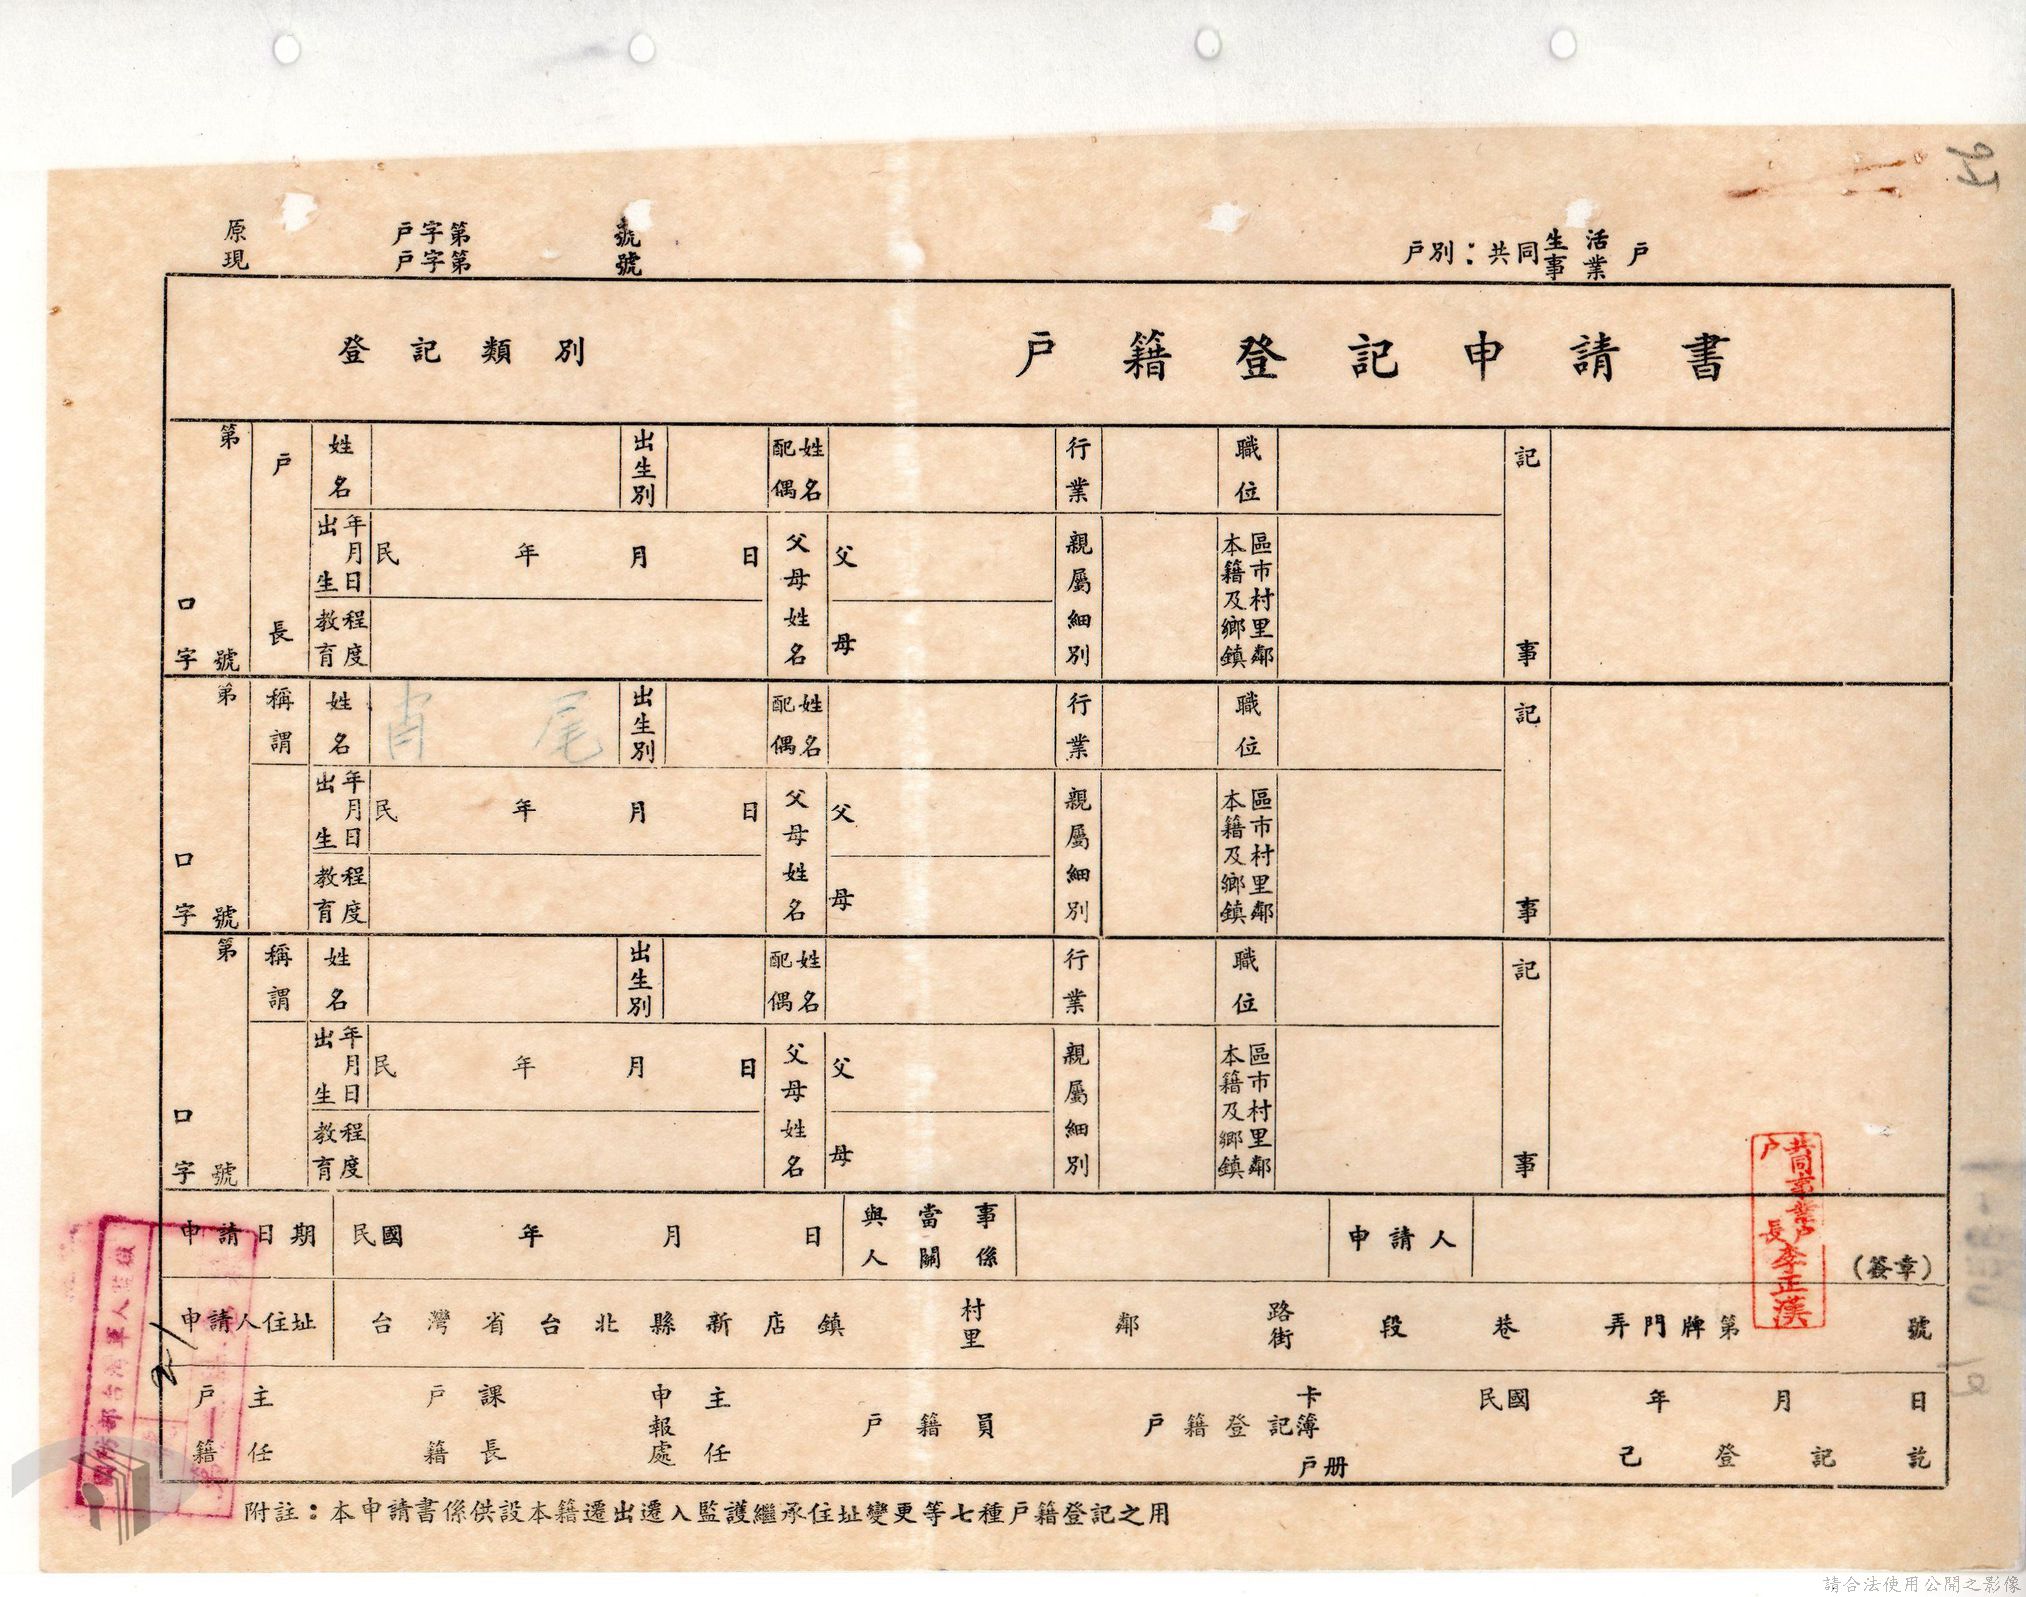 原 戶字第 號
現 戶字第 號
戶別：共同生活事業戶
登記類別
戶籍登記申請書
第 口字號
戶長
姓名
出生別
配偶姓名
行業
職位
記事
出生年月日
民 年 月 日
父母姓名
父
母
親屬細別
本籍及鄉鎮區市村里鄰
教育程度
第 口字號
稱謂
姓名
肖 尾
出生別
配偶姓名
行業
職位
記事
出生年月日
民 年 月 日
父母姓名
父
母
親屬細別
本籍及鄉鎮區市村里鄰
教育程度
第 口字號
稱謂
姓名
出生別
配偶姓名
行業
職位
記事
出生年月日
民 年 月 日
父母姓名
父
母
親屬細別
本籍及鄉鎮區市村里鄰
教育程度
申請日期 民國 年 月 日 與當事人關係 申請人 (簽章)
共同事業戶
戶長李正漢
申請人住址 台灣省台北縣新店鎮 村里 鄰 路街 段 巷 弄門牌第 號
戶籍主任 戶籍課長 申報處主任 戶籍員 戶籍登記卡簿戶冊 民國 年 月 日
己登記訖
附註：本申請書係供設本籍遷出遷入監護繼承住址變更等七種戶籍登記之用
請合法使用公開之影像